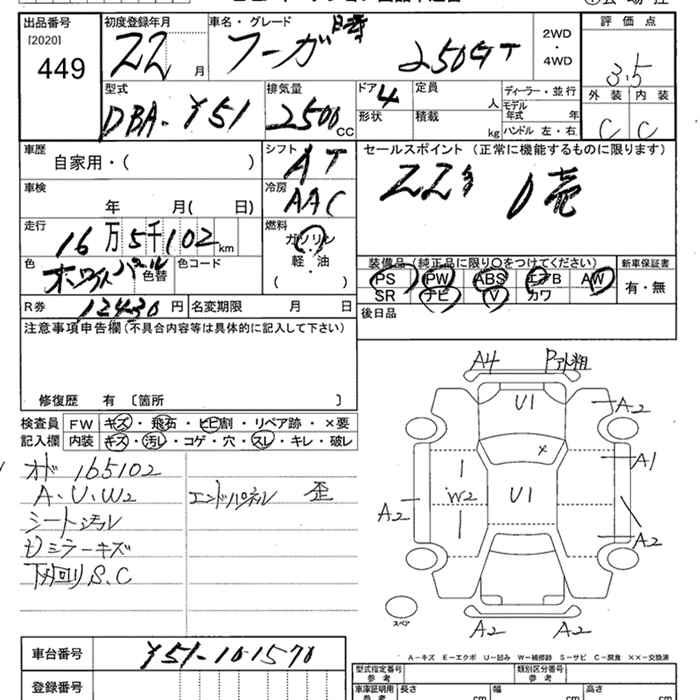 出品番号 初度登録年月 車名・グレード 評価点
[2020]
449 22 月 フーガ 250GT 2WD・4WD 3.5
型式 排気量 ドア 定員 ディーラー・並行 外装 内装
DBA-Y51 2500 CC 4 人 モデル年式 年 C C
形状 積載 kg ハンドル 左・右
車歴 シフト セールスポイント (正常に機能するものに限ります)
自家用・( ) AT
車検 冷房
年 月( 日) AAC
走行 燃料
16万5千102km ガソリン
軽・油
( )
色 色替 色コード
装備品 (純正品に限り○をつけてください) 新車保証書
PS PW ABS エアB AW 有・無
SR ナビ V カワ
R券 12430円 名変期限 月 日
後日品
注意事項申告欄 (不具合内容等は具体的に記入して下さい)
修復歴 有 〔箇所 〕
検査員 FW キズ・飛石・ヒビ割・リペア跡・×要
記入欄 内装 キズ・汚レ・コゲ・穴・スレ・キレ・破レ
165102
A・U・W2 エンドパネル 歪
シート汚レ
ミラーキズ
下回りS.C
A4
U1 A2
A1
W2 U1
A2 A2
スペア
A2 A2
A-キズ E-エクボ U-凹み W-補修跡 S-サビ C-腐食 ××-交換済
車台番号 Y51-101570
型式指定番号 参考 類別区分番号 参考
登録番号 車庫証明用 参考 長さ cm 幅 cm 高さ cm